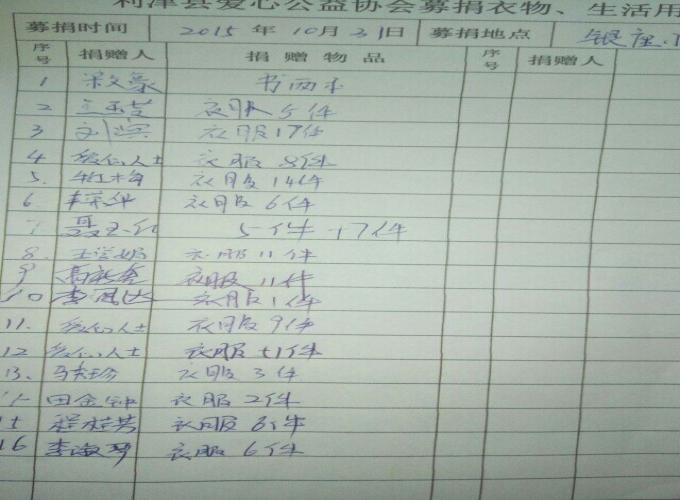 利津县爱心公益协会募捐衣物、生活用
募捐时间 2015年10月31日 募捐地点 银座
序号 捐赠人 捐赠物品 序号 捐赠人
1 宋文豪 书两本
2 王玉芝 衣服5件
3 刘滨 衣服17件
4 爱心人士 衣服8件
5. 牛红梅 衣服14件
6. 衣服6件
7. 聂玉红 5件+7件
8. 衣服11件
9 衣服11件
10 李凤 衣服1件
11. 爱心人士 衣服9件
12 爱心人士 衣服41件
13. 马志珍 衣服3件
田金钟 衣服2件
15 程桂芳 衣服6件
16 李海琴 衣服6件